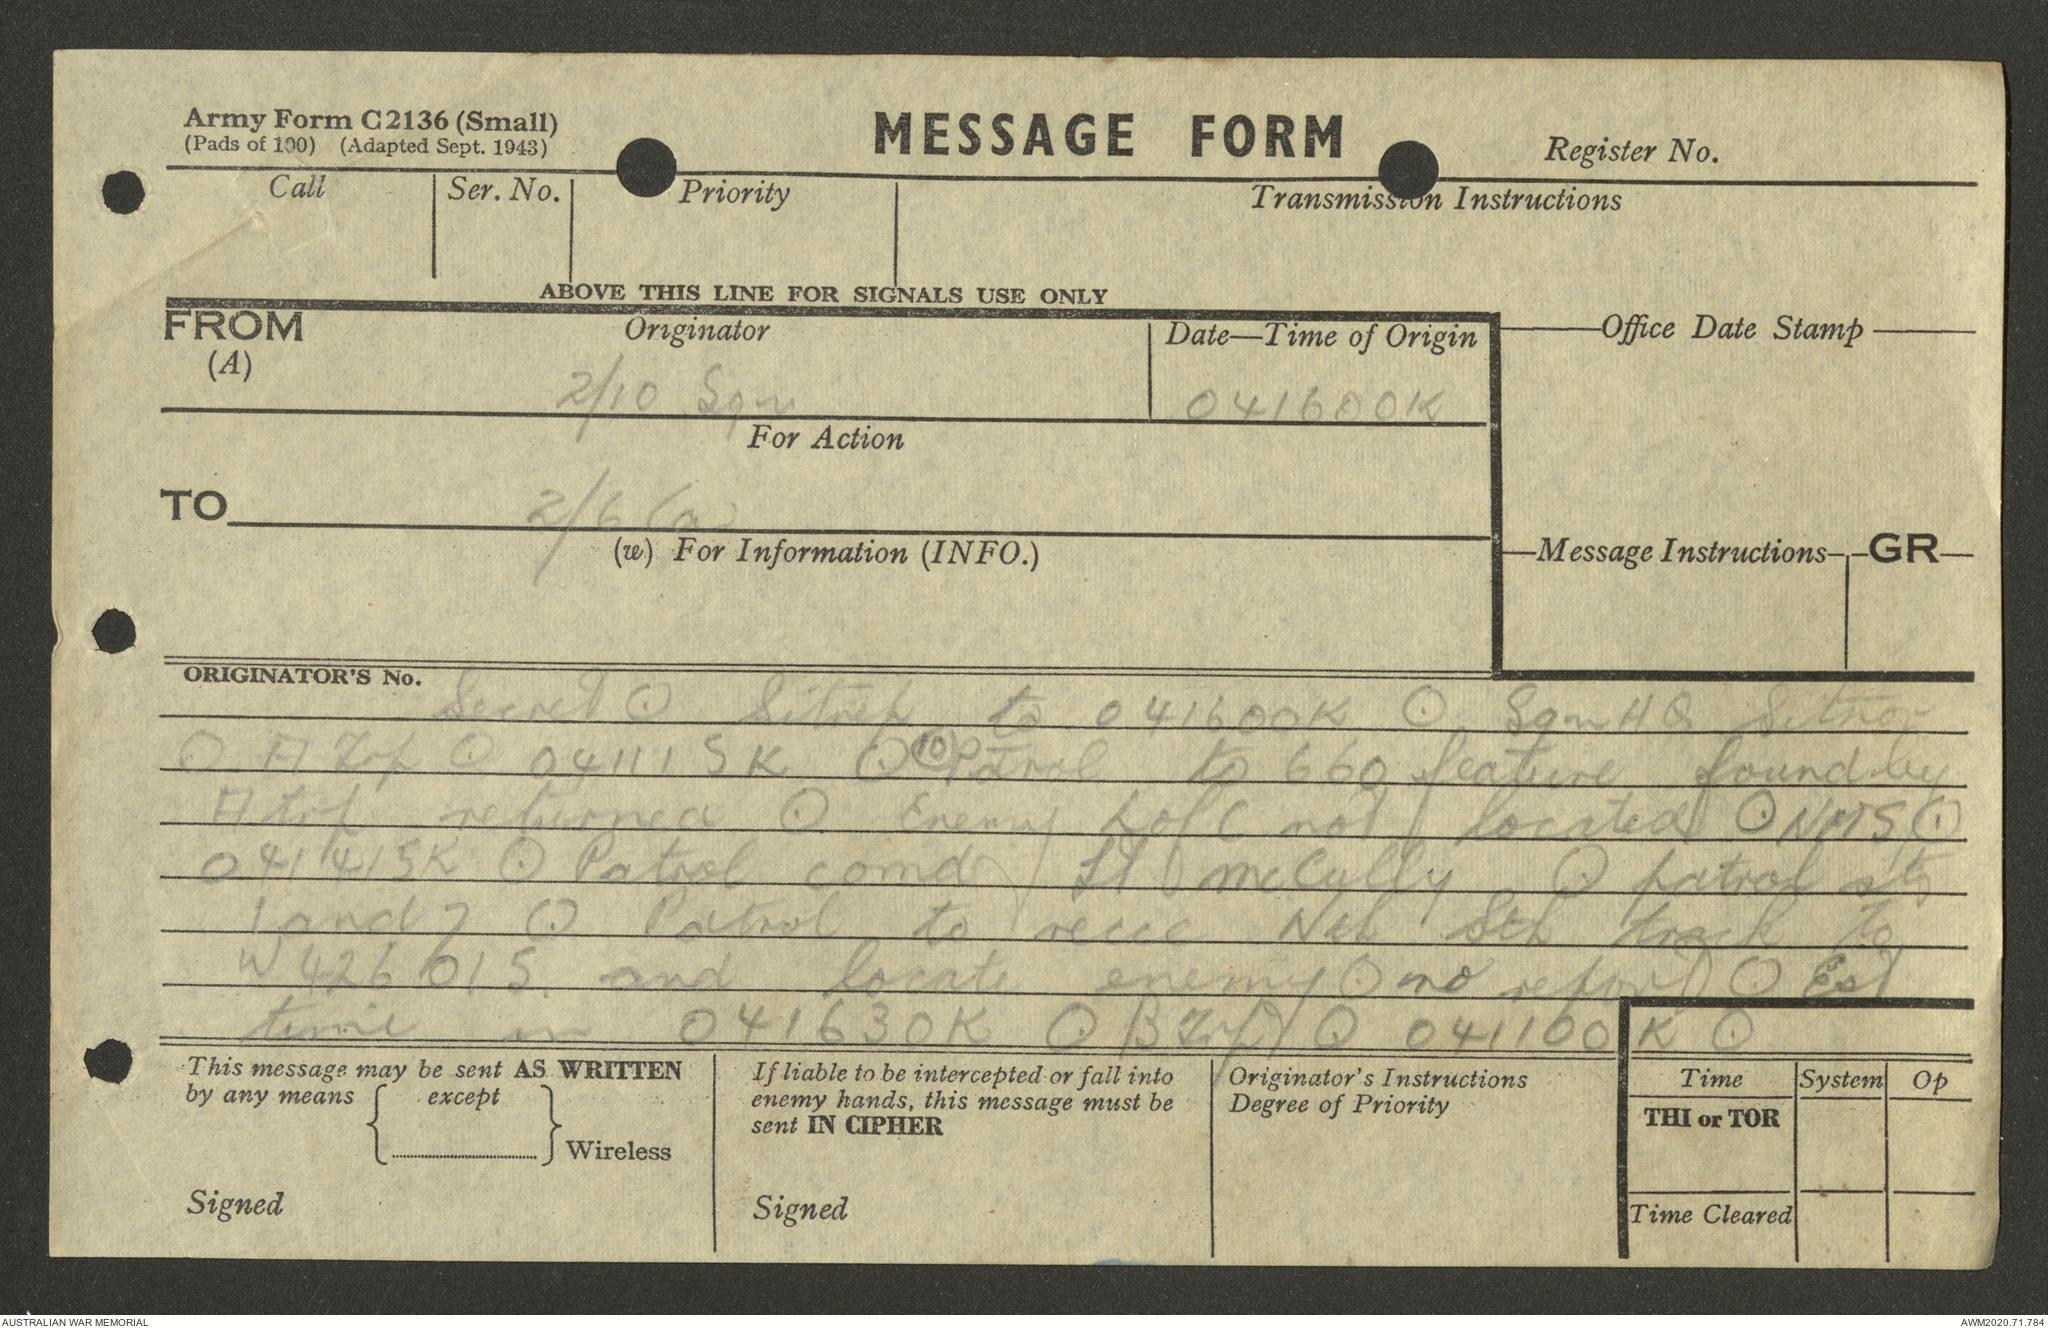 Army Form C2136 (Small)
(Pads of 100) (Adapted Sept. 1943)
MESSAGE FORM
Register No.
Call
Ser. No.
Priority
Transmission Instructions
ABOVE THIS LINE FOR SIGNALS USE ONLY
FROM
(A)
Originator
2/10 Sqn
Date—Time of Origin
041600K
Office Date Stamp
For Action
TO
2/6
(w) For Information (INFO.)
Message Instructions
GR
ORIGINATOR'S No.
Secret ⊙ Sitrep to 041600K ⊙ Sqn HQ Sitrep
⊙ A Trp ⊙ 041115K ⊙ (10) Patrol to 660 feature found by
A trp returned ⊙ Enemy L of C not located ⊙ NMS ⊙
041415K ⊙ Patrol comd Lt McCully ⊙ patrol str
1 and 7 ⊙ Patrol to recce Nth Sth track to
W 426015 and locate enemy ⊙ no report ⊙ Est
time in 041630K ⊙ B Trp ⊙ 041100K ⊙
This message may be sent AS WRITTEN
by any means { except } Wireless
Signed
If liable to be intercepted or fall into
enemy hands, this message must be
sent IN CIPHER
Signed
Originator's Instructions
Degree of Priority
Time
System
Op
THI or TOR
Time Cleared
AUSTRALIAN WAR MEMORIAL
AWM2020.71.784